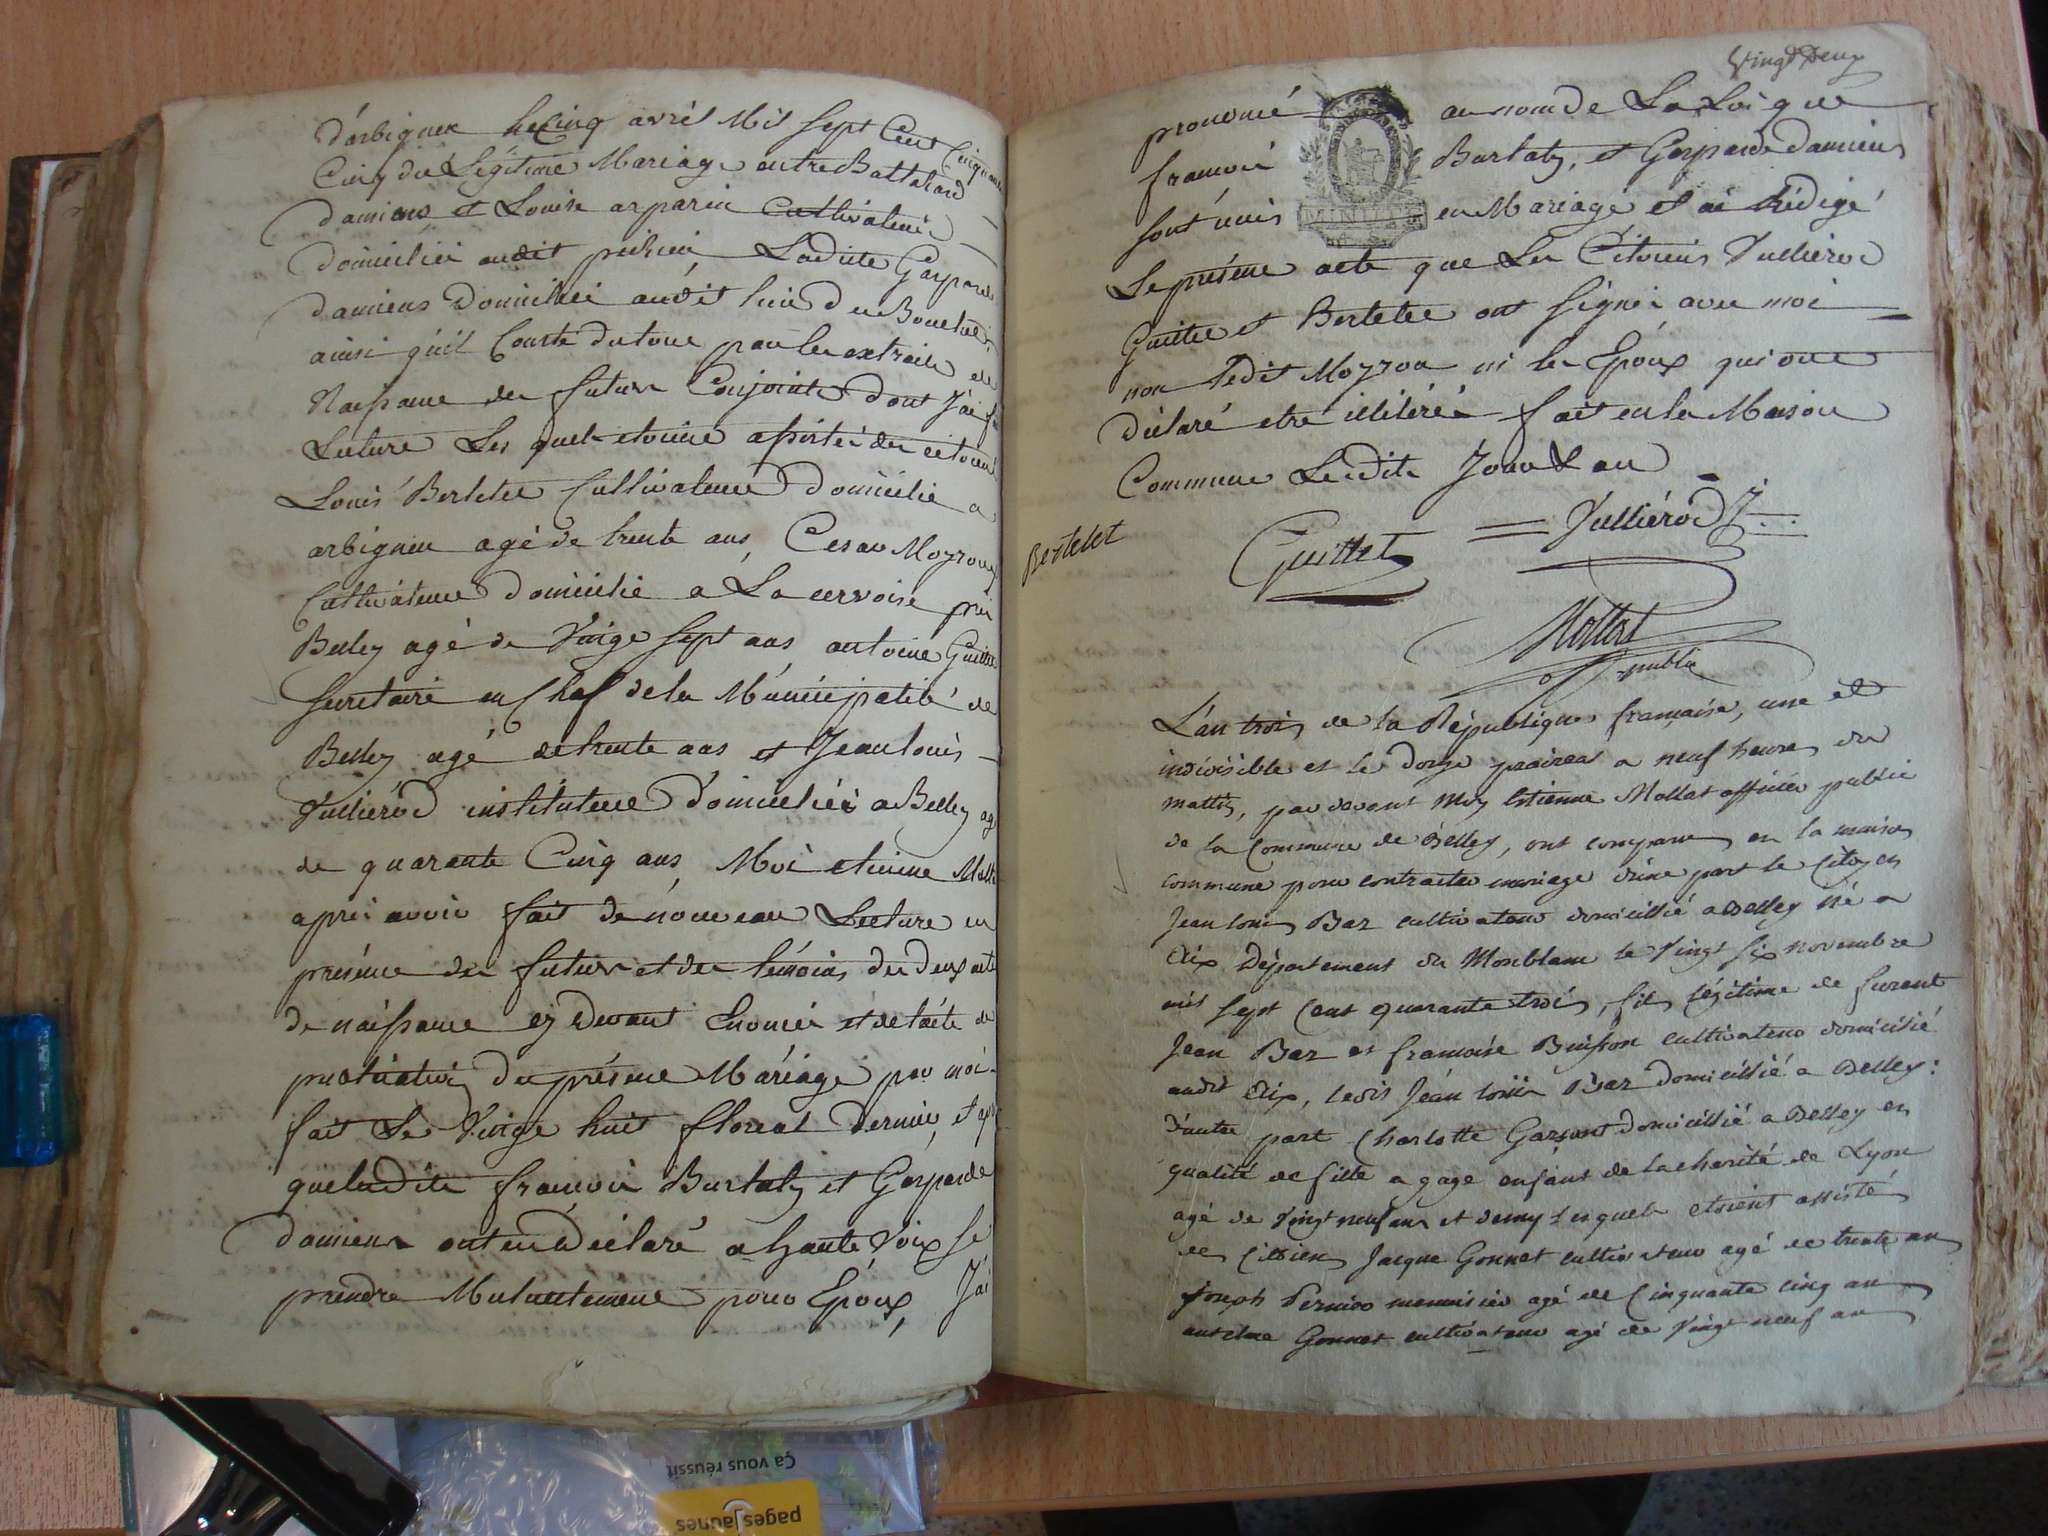 d'arbignieu le Cinq avril Mil Sept Cent Cinquante
Cinq du Légitime Mariage entre Baltazard
damiens et Louise arparin Cultivateurs
domiciliés audit Ladite Gasparde
damiens Domiciliée audit lieu du Bouchet
ainsi qu'il Conste du tout par les extraits de
Naissance des futurs Conjoints dont J'ai fait
Lecture Les quels etoient assistés des citoiens
Louis Bertetet Cultivateur Domicilié a
arbignieu agé de trente ans, Cesar Moyroux
Cultivateur domicilié a La cervoise près
Belley agé de Vingt Sept ans antoine Guittet
Secretaire en Chef de la Municipalité de
Belley agé de trente ans et Jean louis
Vulliérod instituteur domiciliés a Belley agé
de quarante Cinq ans, Moi etienne Mollet
après avoir fait de nouveau Lecture en
présence des futurs et des témoins des deux actes
de naissance cy devant Enoncés et de l'acte de
publication du présent Mariage par moi
fait Le Vingt huit floreal dernier, et après
que lesdits francois Burtaty et Gasparde
damiens ont eu déclaré a haute Voix se
prendre Mutuellement pour Epoux, J'ai
Vingt Deux
prononcé au nom de La Loi que
francois Burtaty, et Gasparde damiens
sont unis en Mariage et ai Rédigé
Le présent acte que Les Citoiens Vulliérod
Guittet et Bertetet ont signés avec moi
non ledit Moyrou ni les Epoux qui ont
déclaré etre illitérés fait en la Maison
Commune Lesdits Jour & an
Bertetet Guittet Vulliérod
Mollet
off public
L'an trois de la République francaise, une et
indivisible et le douze prairial a neuf heures du
mattin, par devant Moy Etienne Mollet officier public
de la Commune de Belley, ont comparu en la maison
commune pour contracter mariage d'une part le Citoyen
Jean louis Baz cultivateur domicillié a Belley né a
Aix Département du Monblanc le Vingt Six novembre
mil Sept Cent quarante trois, fils légitime de furent
Jean Baz et francoise Buisson cultivateur domicilié
audit Aix, ledit Jean louis Baz domicillié a Belley:
d'autre part Charlotte domicillié a Belley en
qualité de fille a gage enfant de la charité de Lyon
agé de Vingt neuf ans et demy Lesquels etoient assisté
de Citoien Jacque Gonnet cultivateur agé de trente an
Joseph Pernier menuisier agé de Cinquante cinq an
antelme Gonnet cultivateur agé de Vingt neuf an
Ça vous réussit
pages Jaunes